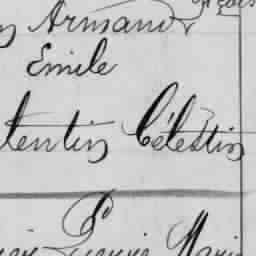 Armand
Emile
tentin Célestin
Pierre Marie